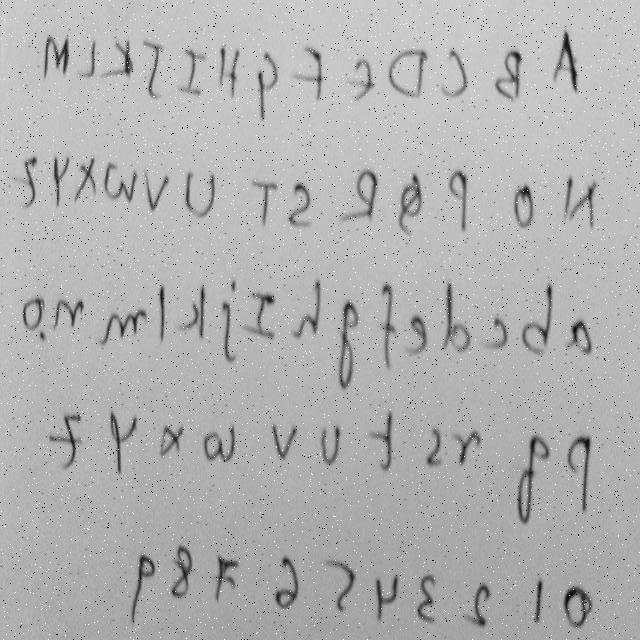 A B C D E F G H I J K L M
N O P Q R S T U V W X Y Z
a b c d e f g h I j k l m n o
p q r s t u v w x y z
0 1 2 3 4 5 6 7 8 9